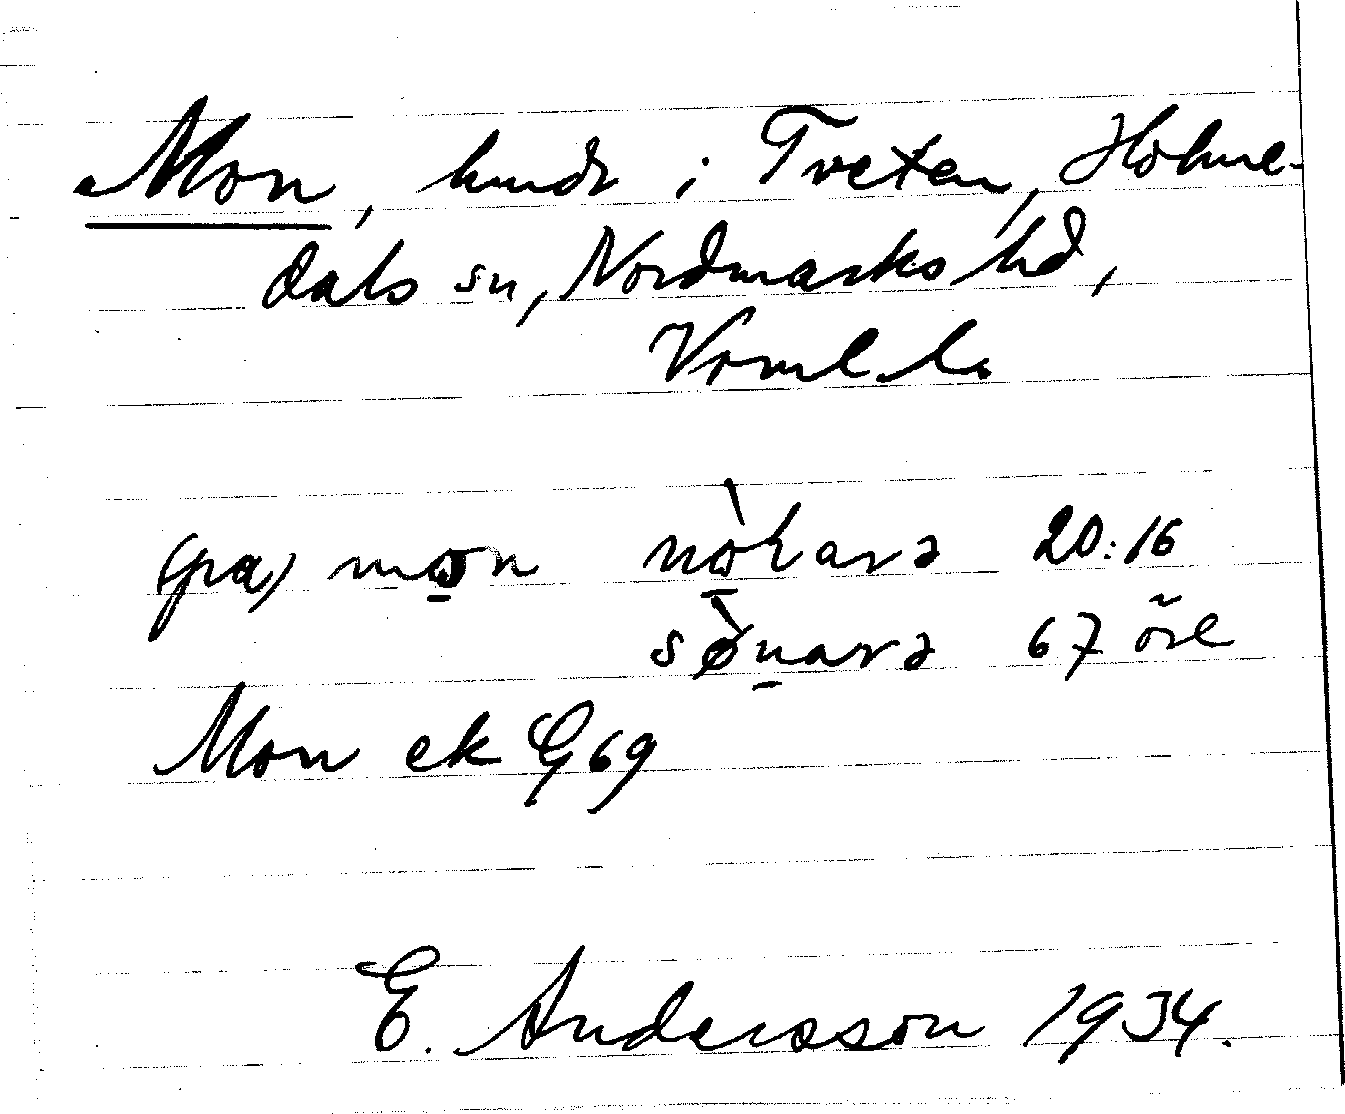 Mon, hmdr i Tveten, Holme-
dals sn, Nordmarks hd,
Vrml. l.
(pa) mon nòḷara 20:16
sø̀nara 67 öre
Mon ek G69
E. Andersson 1934.